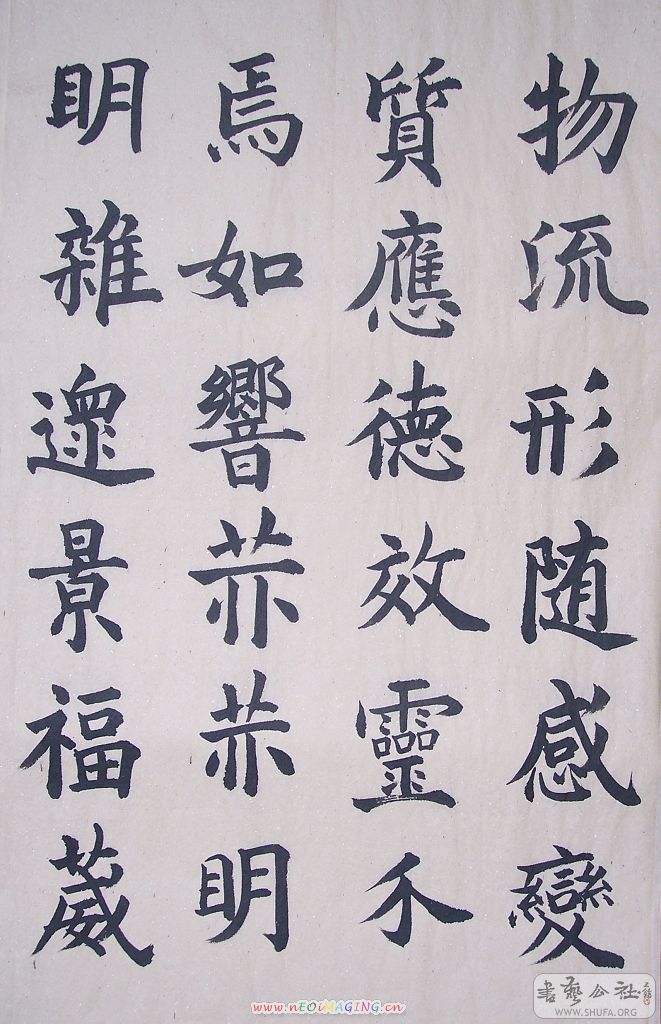 物流形随感變
質應德效靈介
焉如響赫赫明
明雜遝景福葳
書藝公社
www.SHUFA.ORG
www.nEOiMAGING.cn